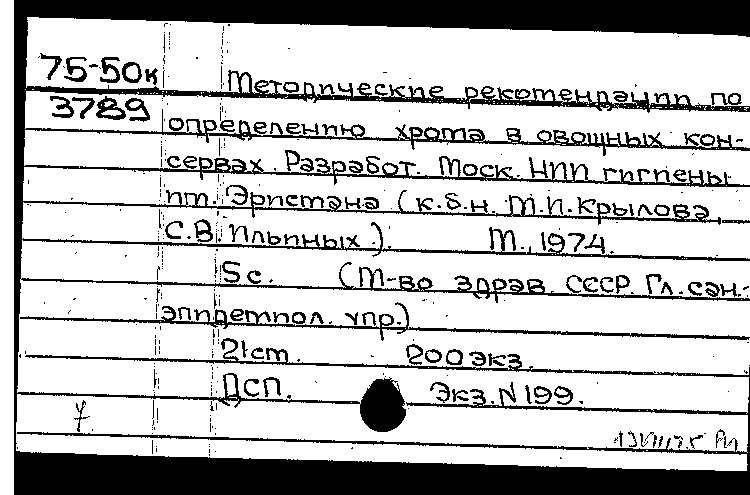 75-50к Методические рекомендации по
3789 определению хрома в овощных кон-
сервах. Разработ. Моск. НИИ гигиены
им. Эрисмана (к.б.н. М.И. Крылова,
С.В. Ильиных). М., 1974.
5с. (М-во здрав. СССР. Гл. сан.-
эпидемиол. упр.)
21см. 200экз.
ДСП. Экз. N 199.